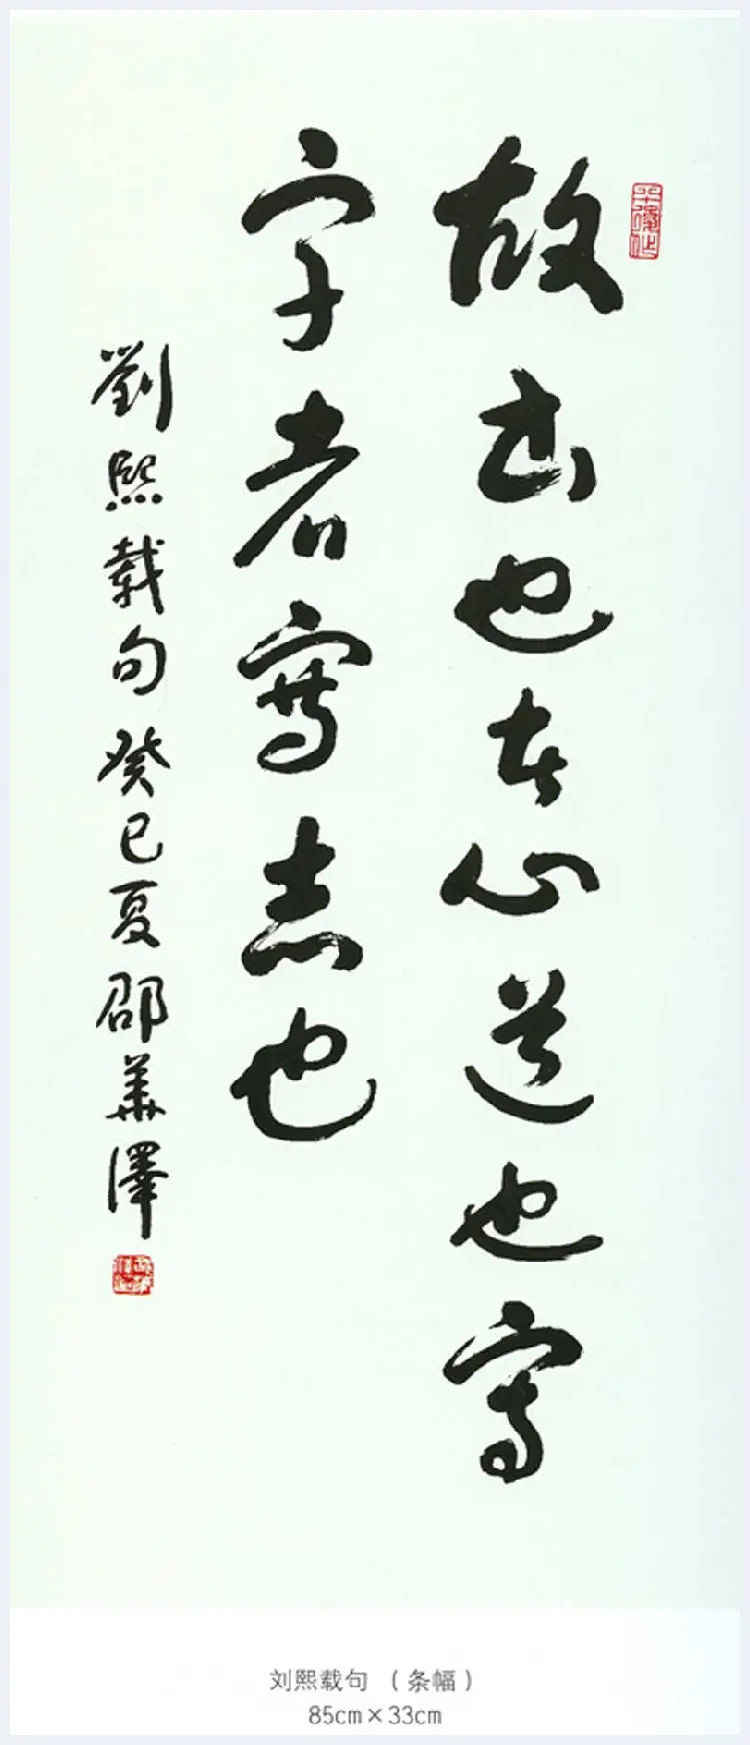 故书也者心学也寫
字者寫志也
劉熙载句 癸巳夏 邵華澤
刘熙载句 （条幅）
85cm×33cm